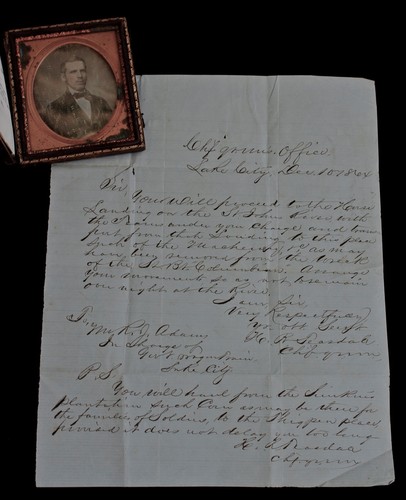 Chf Qr mrs. Office
Lake City, Dec 10 1864
Sir
You will proceed to the Horse
Landing on the St Johns River with
the Teams under your Charge and trans
port from that Landing to this place
such of the Machinery as may
have been removed from the wreck
of the St Bt Columbine. Arrange
your movements so as not to remain
one night at the River
I am Sir
Very Respectfully
Yr obt Servt
H. R. Teasdale
Chf qr mr
To
Mr R. J. Adams
In Charge of
Gov't Wagon Train
Lake City
P.S.
You will haul from the
plantation such Corn as may be there for
the families of Soldiers, to the place
provided it does not delay you too long
H. R. Teasdale
Chf qr mr